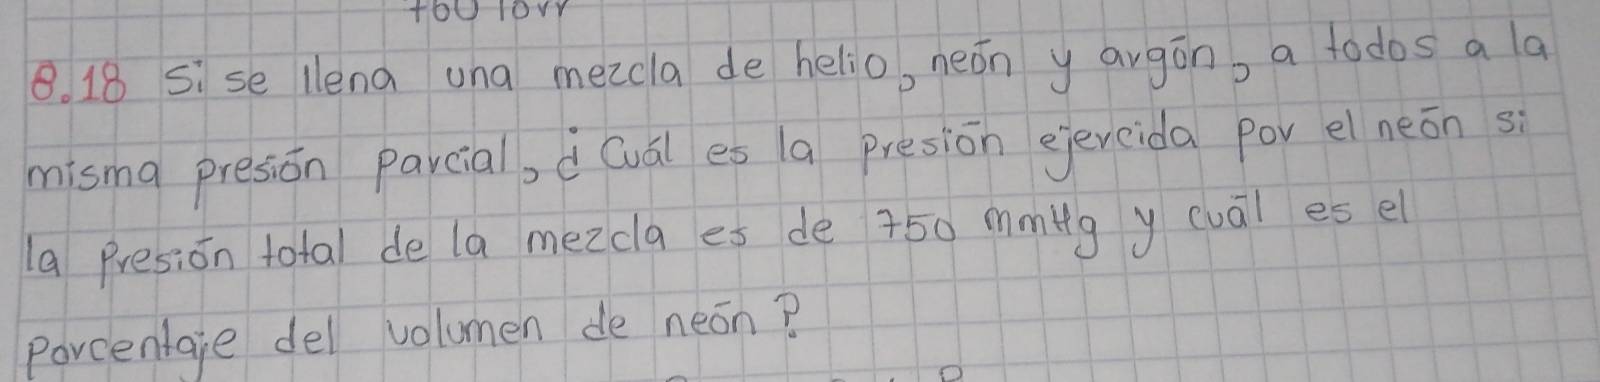 760 Torr
8.18 Si se llena una mezcla de helio, neón y argón, a todos a la
misma presión parcial, ¿Cuál es la presión ejercida por el neón si
la presión total de la mezcla es de 750 mmHg y cuál es el
porcentaje del volumen de neón?